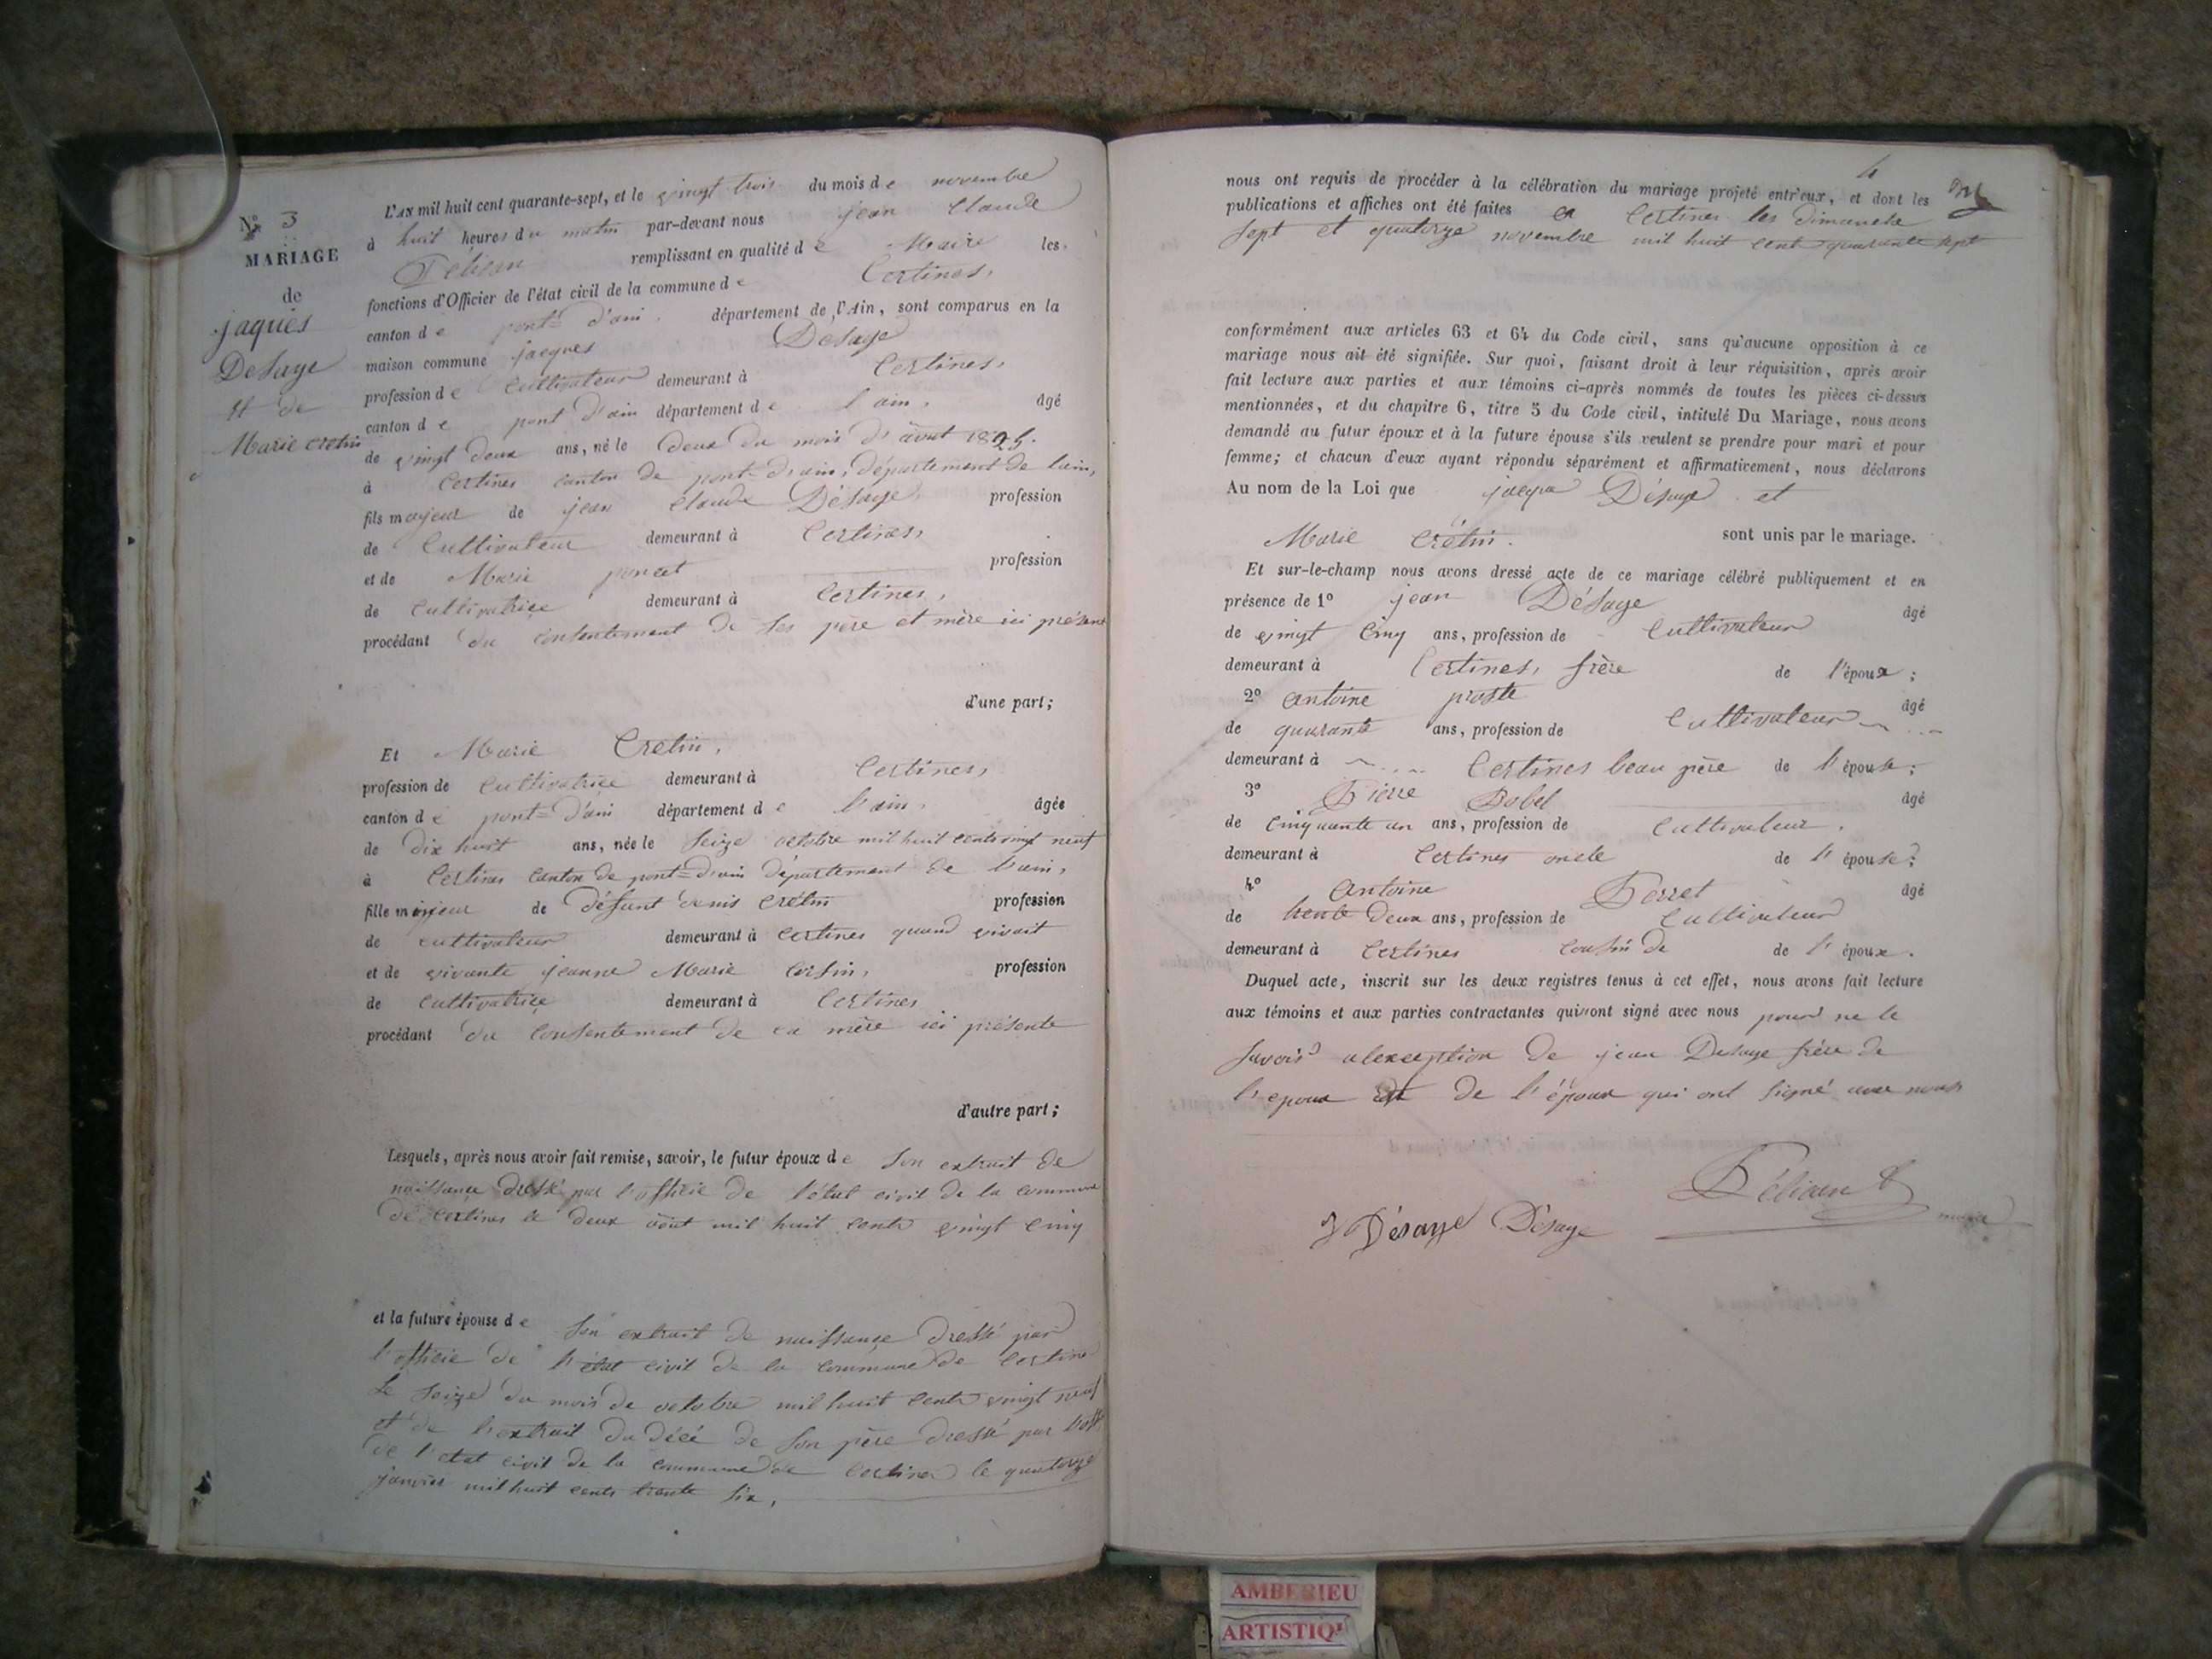 Nº 3
MARIAGE
de
jaques
Desaye
et de
Marie cretin
L'AN mil huit cent quarante-sept, et le vingt trois du mois de novembre
à huit heures du matin par-devant nous jean Claude
Pélican remplissant en qualité de Maire les
fonctions d'Officier de l'état civil de la commune de Certines,
canton de pont=d'ain, département de l'Ain, sont comparus en la
maison commune jacques Desaye
profession de Cultivateur demeurant à Certines,
canton de pont d'ain département de l'ain, âgé
de vingt deux ans, né le deux du mois d'août 1825.
à Certines canton de pont=d'ain, département de lain,
fils majeur de jean Claude Désaye, profession
de Cultivateur demeurant à Certines,
et de Marie poncet profession
de Cultivatrice demeurant à Certines,
procédant du consentement de ses père et mère ici présent
d'une part;
Et Marie Cretin,
profession de Cultivatrice demeurant à Certines,
canton de pont=d'ain département de l'ain, âgée
de dix huit ans, née le seize octobre mil huit cent vingt neuf
à Certines canton de pont=d'ain département de l'ain,
fille mineure de défunt denis crétin profession
de cultivateur demeurant à Certines quand vivait
et de vivante jeanne Marie profession
de Cultivatrice demeurant à Certines
procédant du Consentement de sa mère ici présente
d'autre part;
Lesquels, après nous avoir fait remise, savoir, le futur époux de son extrait de
naissance dressé par l'officie de l'état civil de la commune
de Certines le deux août mil huit cents vingt cinq
et la future épouse de son extrait de naissance dressé par
l'officie de l'état civil de la commune de Certines
le seize du mois de octobre mil huit cents vingt neuf
et de l'extrait du décé de son père dressé par l'off.
de l'état civil de la commune de Certines le quatorze
janvier mil huit cents trente six,
4
nous ont requis de procéder à la célébration du mariage projeté entr'eux, et dont les
publications et affiches ont été faites a Certines les dimanche
sept et quatorze novembre mil huit cent quarante sept
conformément aux articles 63 et 64 du Code civil, sans qu'aucune opposition à ce
mariage nous ait été signifiée. Sur quoi, faisant droit à leur réquisition, après avoir
fait lecture aux parties et aux témoins ci-après nommés de toutes les pièces ci-dessus
mentionnées, et du chapitre 6, titre 5 du Code civil, intitulé Du Mariage, nous avons
demandé au futur époux et à la future épouse s'ils veulent se prendre pour mari et pour
femme; et chacun d'eux ayant répondu séparément et affirmativement, nous déclarons
Au nom de la Loi que Désaye et
Marie crétin. sont unis par le mariage.
Et sur-le-champ nous avons dressé acte de ce mariage célébré publiquement et en
présence de 1º jean Désaye âgé
de vingt Cinq ans, profession de Cultivateur
demeurant à Certines, frère de l'époux;
2º antoine proste âgé
de quarante ans, profession de Cultivateur
demeurant à Certines beau père de l'épouse;
3º Pierre Bobel âgé
de cinquante un ans, profession de Cultivateur,
demeurant à Certines oncle de l'épouse;
4º antoine Perret âgé
de trente Deux ans, profession de Cultivateur
demeurant à Certines Cousin de de l'époux.
Duquel acte, inscrit sur les deux registres tenus à cet effet, nous avons fait lecture
aux témoins et aux parties contractantes qui ont signé avec nous pour ne le
savoir a lexception de jean Desaye frère de
l'epoux et de l'époux qui ont signé avec nous
J Désaye Désaye
Pélican
maire
AMBERIEU
ARTISTIQ